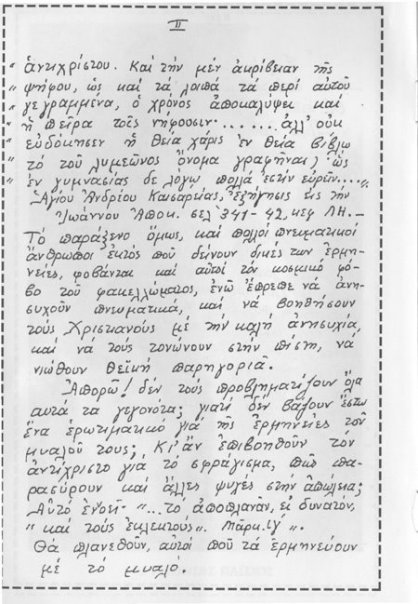 11
" ἀντιχρίστου. Καί τήν μέν ἀκρίβειαν τῆς
" ψήφου, ὡς καί τά λοιπά τά περί αὐτοῦ
" γεγραμμένα, ὁ χρόνος ἀποκαλύψει καί
" ἡ πεῖρα τοῖς νήφουσιν....... ἀλλ' οὐκ
" εὐδόκησεν ἡ θεία χάρις ἐν θείᾳ βίβλῳ
" τό τοῦ λυμεῶνος ὄνομα γραφῆναι, ὡς
" ἐν γυμνασίας δέ λόγῳ πολλά ἐστίν εὑρεῖν...."
Ἁγίου Ἀνδρέου Καισαρείας, ἐξήγησις εἰς τήν
Ἰωάννου Ἀποκ. σελ 341-42, κεφ ΛΗ.—
Τό παράξενο ὅμως, καί πολλοί πνευματικοί
ἄνθρωποι ἐκτός πού δίνουν δικές των ἑρμη-
νεῖες, φοβᾶνται καί αὐτοί τόν κοσμικό φό-
βο τοῦ φακελλώματος, ἐνῶ ἔπρεπε νά ἀνη-
συχοῦν πνευματικά, καί νά βοηθήσουν
τούς Χριστιανούς μέ τήν καλή ἀνησυχία,
καί νά τούς τονώνουν στήν πίστη, νά
νιώθουν θεϊκή παρηγοριά.
Ἀπορῶ! δέν τούς προβληματίζουν ὅλα
αὐτά τά γεγονότα; γιατί δέν βάζουν ἔστω
ἕνα ἐρωτηματικό γιά τῆς ἑρμηνεῖες τοῦ
μυαλοῦ τους; Κι' ἄν ἐπιβοηθοῦν τόν
ἀντίχριστο γιά τό σφράγισμα, πῶς πα-
ρασύρουν καί ἄλλες ψυχές στήν ἀπώλεια;
Αὐτό ἐνοεῖ "...τό ἀποπλανᾶν, εἰ δυνατόν,
" καί τούς ἐκλεκτούς". Μάρκ. ιγ".
Θά πλανεθοῦν, αὐτοί πού τά ἑρμηνεύουν
μέ τό μυαλό.